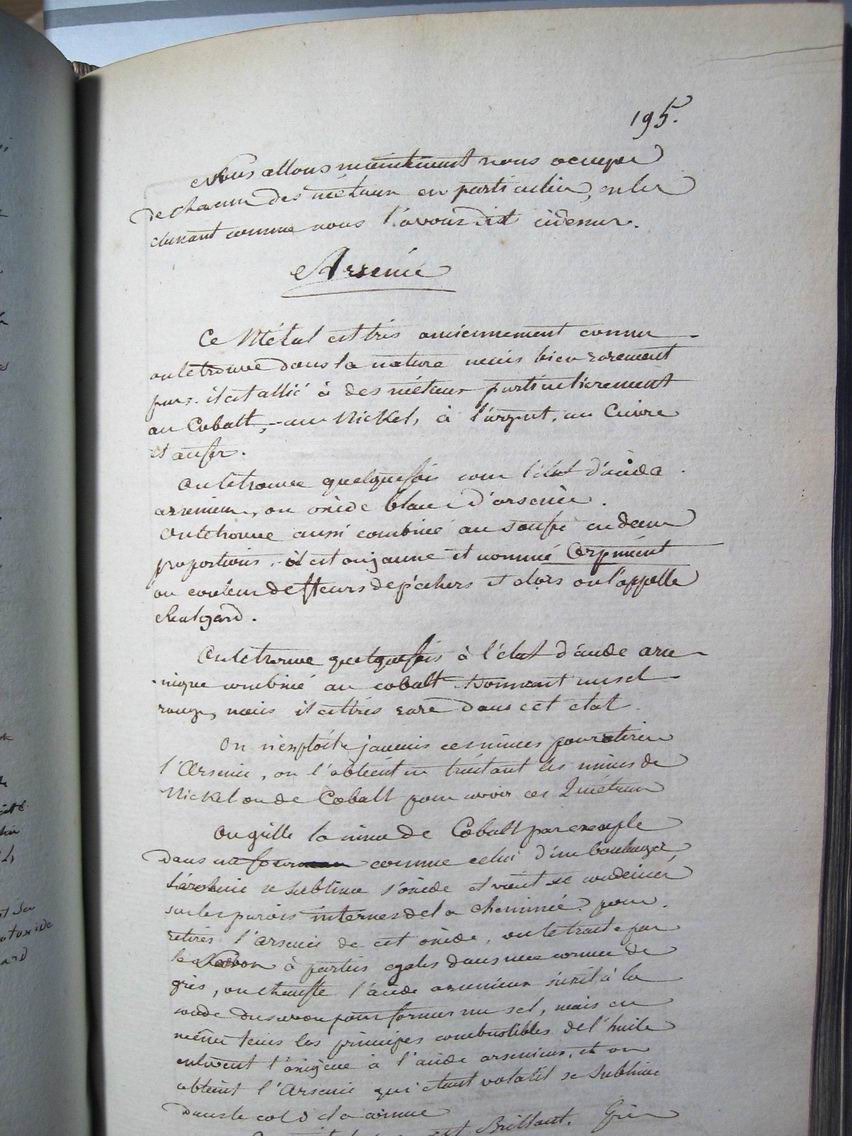 195.
Nous allons maintenant nous occuper
de chacun des métaux en particulier, en les
classant comme nous l'avons dit cidessus.
Arsenic
Ce Métal est très anciennement connu
on le trouve dans la nature mais bien rarement
pur, il est allié à des métaux particulierement
au Cobalt, au Nickel, à l'argent, au Cuivre
et aufer.
On le trouve quelquefois sous l'état d'acide
arsenieux, ou oxide blanc d'arsenic.
On le trouve aussi combiné au soufre en deux
proportions, il est ou jaune et nommé Orpiment
ou couleur de fleurs de pêchers et alors on l'appelle
Realgard.
On le trouve quelquefois à l'état d'acide arse
nique combiné au cobalt donnant un sel
rouge, mais il est très rare dans cet etat.
On n'exploite jamais ces mines pour retirer
l'Arsenic, on l'obtient en traitant les mines de
Nickel ou de Cobalt pour avoir ces 2 métaux
On grille la mine de Cobalt par exemple
dans un comme celui d'un boulanger,
l'arsenic se sublime s'oxide et vient se condenser
sur les parois internes de la cheminée. pour
retirer l'arsenic de cet oxide, on le traite par
le Savon à parties egales dans une cornue de
grès, on chauffe l'acide arsenieux s'unit à la
soude du savon pour former un sel, mais en
même tems les principes combustibles de l'huile
enlevent l'oxigene à l'acide arsenieux, et on
obtient l'Arsenic qui etant volatil se sublime
dans le col de la cornue
est Brillant. Gris